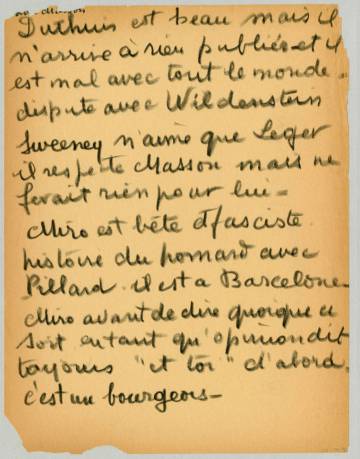 Duthuis est beau mais il
n'arrive à rien publier et il
est mal avec tout le monde.
dispute avec Wildenstein
Sweeney n'aime que Leger
il respecte Masson mais ne
ferait rien pour lui -
Miro est bête & fasciste
histoire du homard avec
Pillard. il est a Barcelone -
Miro avant de dire quoique ce
soit en tant qu'opinion dit
toujours "et toi" d'abord.
c'est un bourgeois -